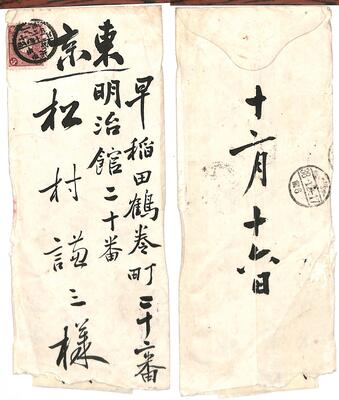 東京
早稲田鶴巻町二十二番
明治館二十番
松村謙三様
十二月十六日